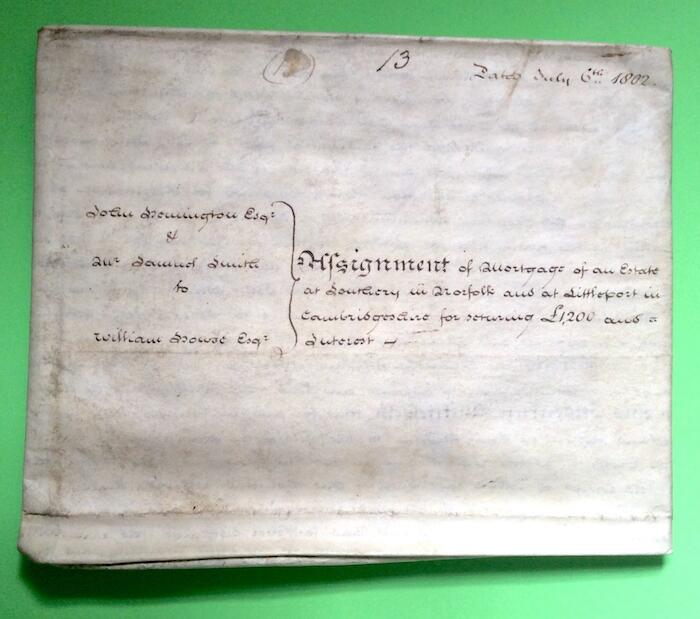 13
Dated July 6th 1802.
John Hemington Esqr
&
Mr Samuel Smith
to
William House Esqr
Assignment of Mortgage of an Estate
at Southery in Norfolk and at Littleport in
Cambridgeshire for securing £1,200 and
Interest